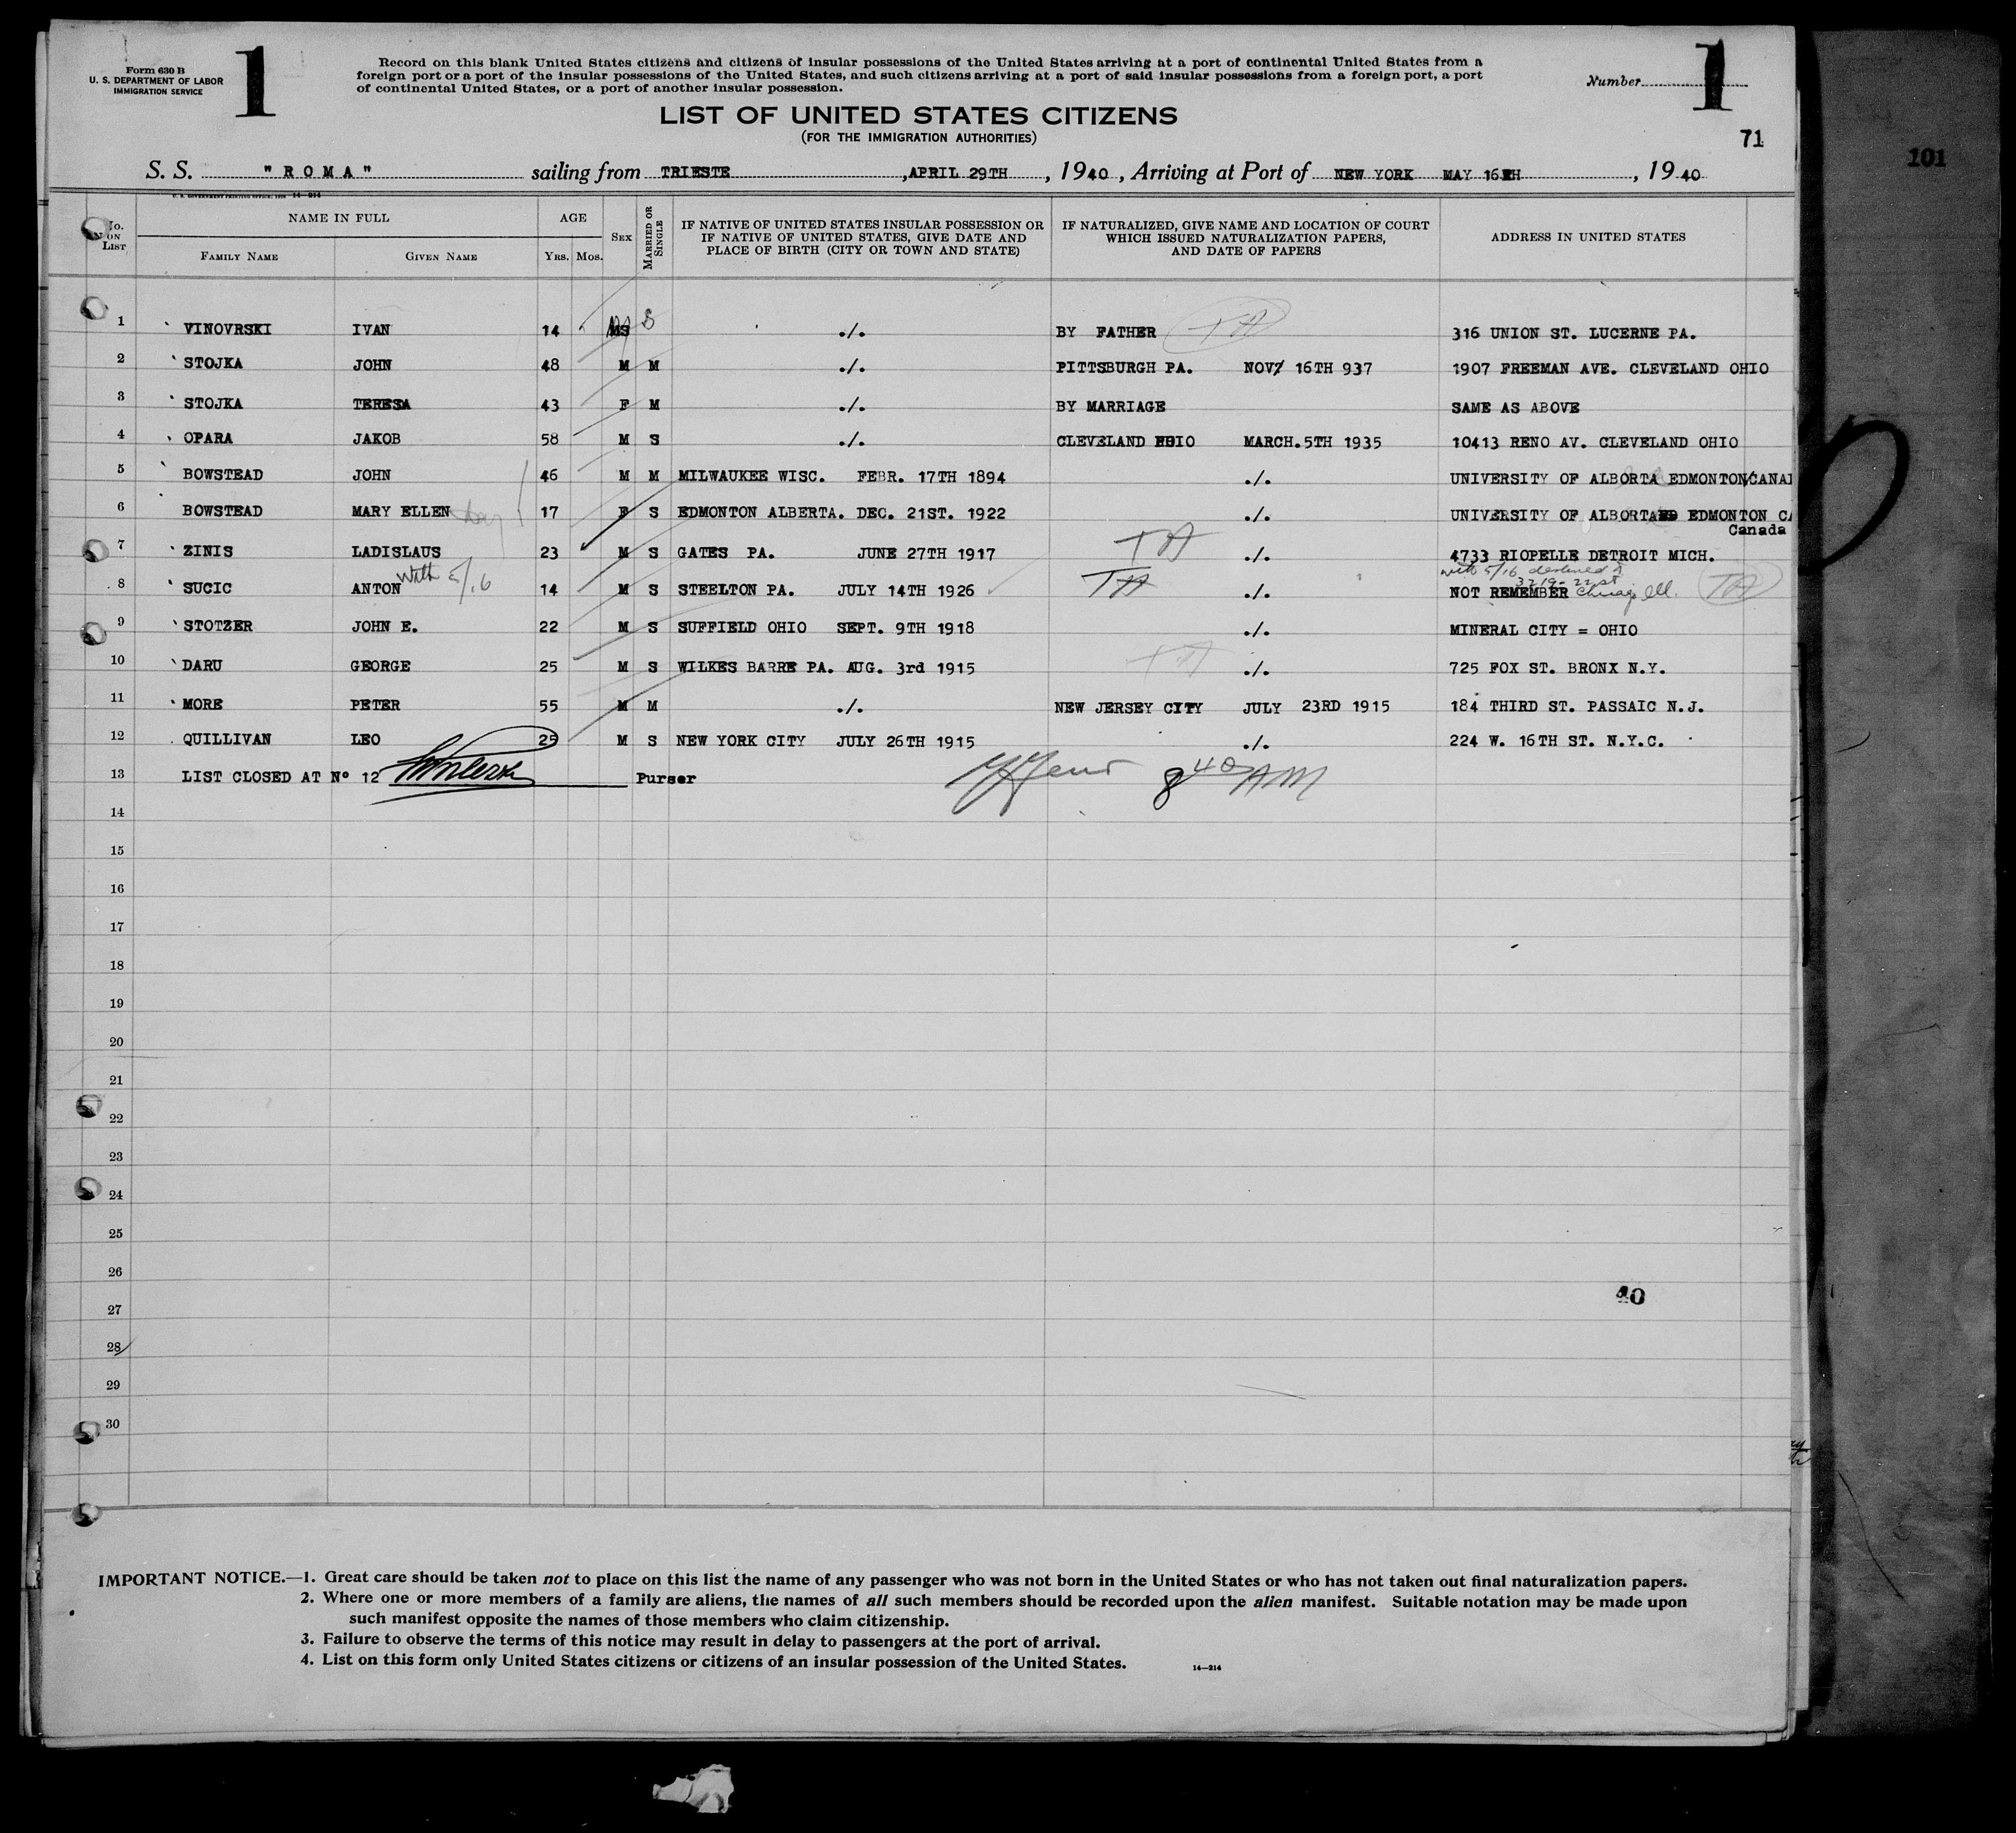 Form 630 B
U. S. DEPARTMENT OF LABOR
IMMIGRATION SERVICE
1
Record on this blank United States citizens and citizens of insular possessions of the United States arriving at a port of continental United States from a
foreign port or a port of the insular possessions of the United States, and such citizens arriving at a port of said insular possessions from a foreign port, a port
of continental United States, or a port of another insular possession.
Number 1
LIST OF UNITED STATES CITIZENS
(FOR THE IMMIGRATION AUTHORITIES)
71
101
S. S. "ROMA" sailing from TRIESTE, APRIL 29TH, 1940, Arriving at Port of NEW YORK MAY 16TH, 1940
U. S. GOVERNMENT PRINTING OFFICE: 14—214
No. ON LIST
NAME IN FULL
FAMILY NAME
GIVEN NAME
AGE
YRS. MOS.
SEX
MARRIED OR SINGLE
IF NATIVE OF UNITED STATES INSULAR POSSESSION OR
IF NATIVE OF UNITED STATES, GIVE DATE AND
PLACE OF BIRTH (CITY OR TOWN AND STATE)
IF NATURALIZED, GIVE NAME AND LOCATION OF COURT
WHICH ISSUED NATURALIZATION PAPERS,
AND DATE OF PAPERS
ADDRESS IN UNITED STATES
1 VINOVRSKI IVAN 14 M S ./. BY FATHER TA 316 UNION ST. LUCERNE PA.
2 STOJKA JOHN 48 M M ./. PITTSBURGH PA. NOV. 16TH 937 1907 FREEMAN AVE. CLEVELAND OHIO
3 STOJKA TERESA 43 F M ./. BY MARRIAGE SAME AS ABOVE
4 OPARA JAKOB 58 M S ./. CLEVELAND OHIO MARCH.5TH 1935 10413 RENO AV. CLEVELAND OHIO
5 BOWSTEAD JOHN 46 M M MILWAUKEE WISC. FEBR. 17TH 1894 ./. UNIVERSITY OF ALBORTA EDMONTON/CANAI
6 BOWSTEAD MARY ELLEN 17 F S EDMONTON ALBERTA. DEC. 21ST. 1922 ./. UNIVERSITY OF ALBORTA EDMONTON CA
Canada
7 ZINIS LADISLAUS 23 M S GATES PA. JUNE 27TH 1917 TA ./. 4733 RIOPELLE DETROIT MICH.
with 5/16 destined to
3219-22 st
8 SUCIC ANTON With 5/16 14 M S STEELTON PA. JULY 14TH 1926 TA ./. NOT REMEMBER Chicago Ill. TA
9 STOTZER JOHN E. 22 M S SUFFIELD OHIO SEPT. 9TH 1918 ./. MINERAL CITY = OHIO
10 DARU GEORGE 25 M S WILKES BARRE PA. AUG. 3rd 1915 TA ./. 725 FOX ST. BRONX N.Y.
11 MORE PETER 55 M M ./. NEW JERSEY CITY JULY 23RD 1915 184 THIRD ST. PASSAIC N.J.
12 QUILLIVAN LEO 25 M S NEW YORK CITY JULY 26TH 1915 ./. 224 W. 16TH ST. N.Y.C.
13 LIST CLOSED AT Nº 12 Purser 8 40 AM
14
15
16
17
18
19
20
21
22
23
24
25
26
27
40
28
29
30
IMPORTANT NOTICE.—1. Great care should be taken not to place on this list the name of any passenger who was not born in the United States or who has not taken out final naturalization papers.
2. Where one or more members of a family are aliens, the names of all such members should be recorded upon the alien manifest. Suitable notation may be made upon
such manifest opposite the names of those members who claim citizenship.
3. Failure to observe the terms of this notice may result in delay to passengers at the port of arrival.
4. List on this form only United States citizens or citizens of an insular possession of the United States.
14—214